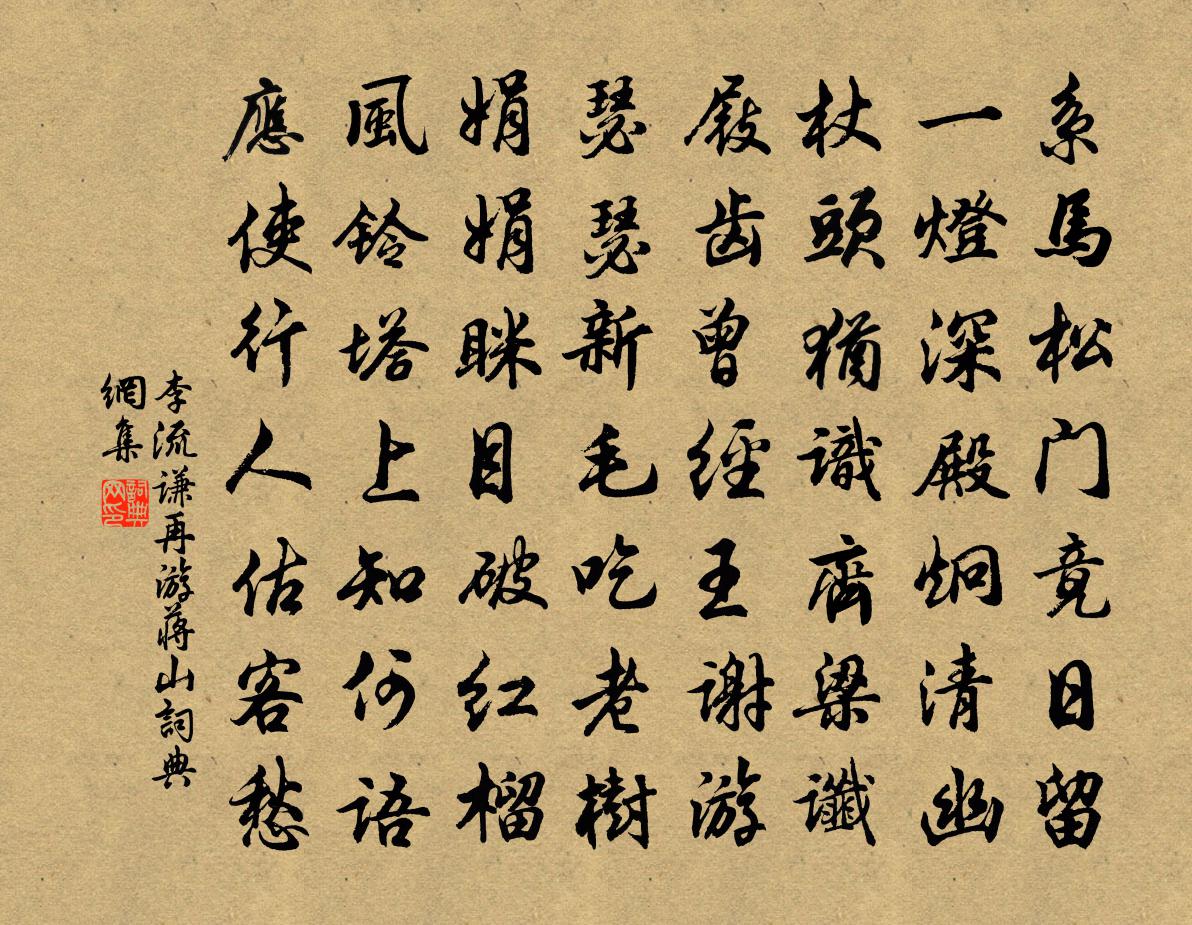 系馬松门竟日留
一燈深殿炯清幽
杖頭猶識齊梁讖
屐齿曾經王謝游
瑟瑟新毛吃老樹
娟娟眯目破红榴
風铃塔上知何语
應使行人估客愁
李流谦再游蒋山詞典
網集
詞典网印